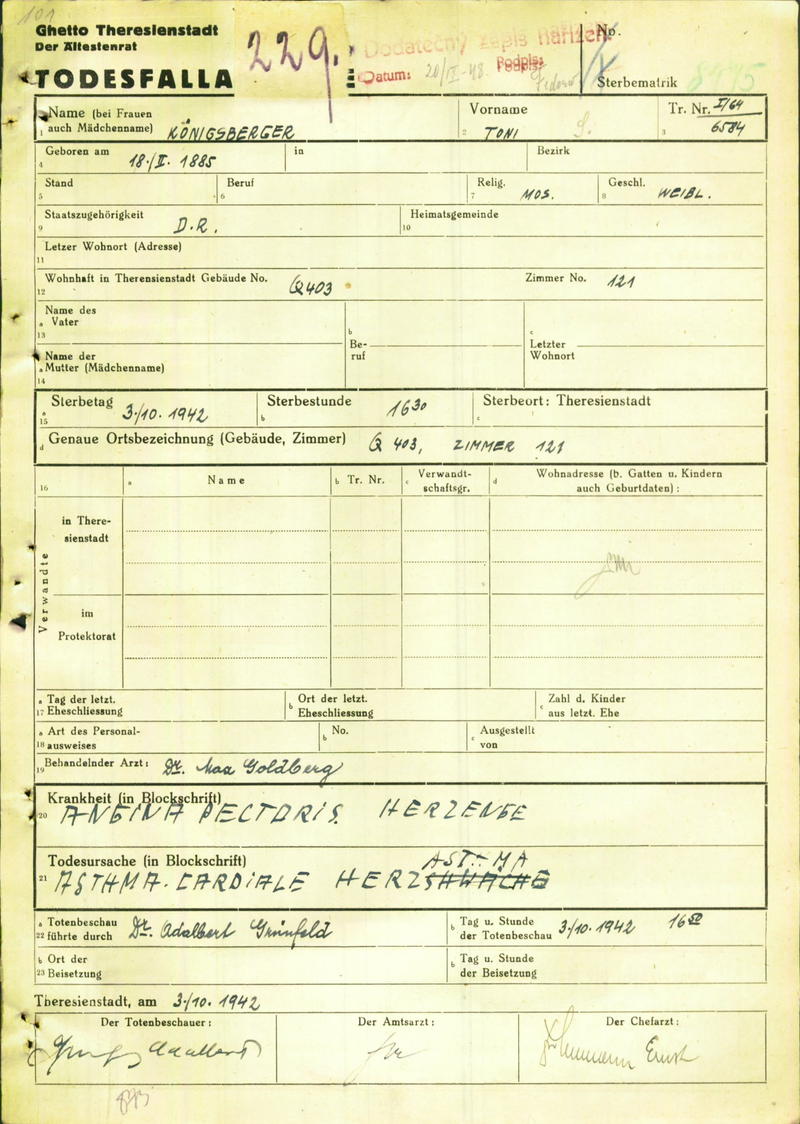 101
Ghetto Theresienstadt
Der Ältestenrat
TODESFALLA
229.
Dodatečný zápis nařízen
Datum: 20/IX-48 Podpis:
No.
Sterbematrik
Name (bei Frauen
1 auch Mädchenname) KÖNIGSBERGER
Vorname
2 TONI S.
Tr. Nr. I/64
3 6584
Geboren am
4 18./II. 1885
in
Bezirk
Stand
5
Beruf
6
Relig.
7 MOS.
Geschl.
8 WEIBL.
Staatszugehörigkeit
9 D.R.
Heimatsgemeinde
10
Letzer Wohnort (Adresse)
11
Wohnhaft in Therensienstadt Gebäude No. Q403
12
Zimmer No. 121
Name des
a Vater
13
b
Be-
ruf
c
Letzter
Wohnort
Name der
a Mutter (Mädchenname)
14
Sterbetag
a
15 3./10. 1942
Sterbestunde
b 16 30
Sterbeort: Theresienstadt
c
Genaue Ortsbezeichnung (Gebäude, Zimmer)
d Q 403, ZIMMER 121
16
a Name
b Tr. Nr.
c Verwandt-
schaftsgr.
d Wohnadresse (b. Gatten u. Kindern
auch Geburtdaten) :
Verwandte
in There-
sienstadt
im
Protektorat
a Tag der letzt.
17 Eheschliessung
b Ort der letzt.
Eheschliessung
c Zahl d. Kinder
aus letzt. Ehe
a Art des Personal-
18 ausweises
b No.
c Ausgestellt
von
19 Behandelnder Arzt: Dr. Max Goldberg
Krankheit (in Blockschrift)
20 ANGINA PECTORIS. HERZENGE
Todesursache (in Blockschrift)
ASTHMA
21 ASTHMA-CARDIALE HERZSHWÄCHE
a Totenbeschau
22 führte durch Dr. Adalbert Grünfeld
b Tag u. Stunde
der Totenbeschau 3./10. 1942 16 50
b Ort der
23 Beisetzung
b Tag u. Stunde
der Beisetzung
Theresienstadt, am 3./10. 1942
Der Totenbeschauer:
Der Amtsarzt:
Der Chefarzt:
Adalbert
Ernst